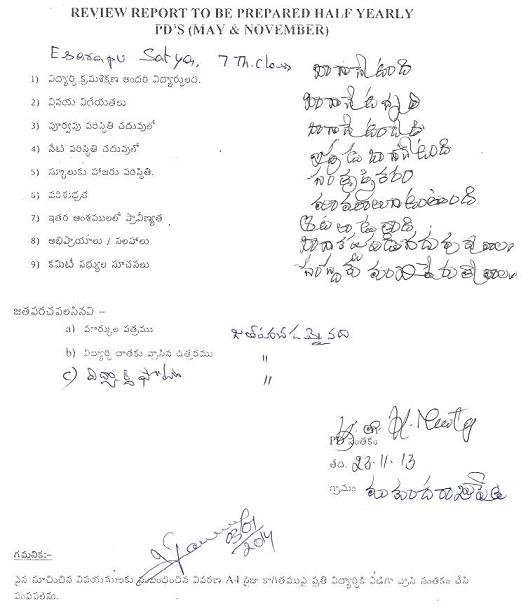 REVIEW REPORT TO BE PREPARED HALF YEARLY
PD'S (MAY & NOVEMBER)
Esarapu Satya, 7 Th. Class
1) విద్యార్థి క్రమశిక్షణ అందరి విద్యార్థులది. బాగానే ఉంది
2) వినయ విధేయతలు బాగానే ఉన్నవి
3) పూర్వపు పరిస్థితి చదువులో బాగానే ఉండేది
4) నేటి పరిస్థితి చదువులో ఇప్పుడు బాగానే ఉంది
5) స్కూలుకు హాజరు పరిస్థితి. సంతృప్తికరం
6) పరిశుభ్రత
7) ఇతర అంశములలో ప్రావీణ్యత
8) అభిప్రాయాలు / సలహాలు
9) కమిటీ సభ్యుల సూచనలు
జతపరచవలసినవి :-
a) మార్కుల పత్రము జతపరచడమైనది
b) విద్యార్థి దాతకు వ్రాసిన ఉత్తరము "
c) విద్యార్థి ఫోటో "
PD సంతకం
తేది. 23.11.13
గ్రామం
03/01/2014
గమనిక:-
పైన సూచించిన విషయములకు సంబంధించిన వివరణ A4 సైజు కాగితముపై ప్రతి విద్యార్థికి విడిగా వ్రాసి సంతకం చేసి
పంపవలెను.